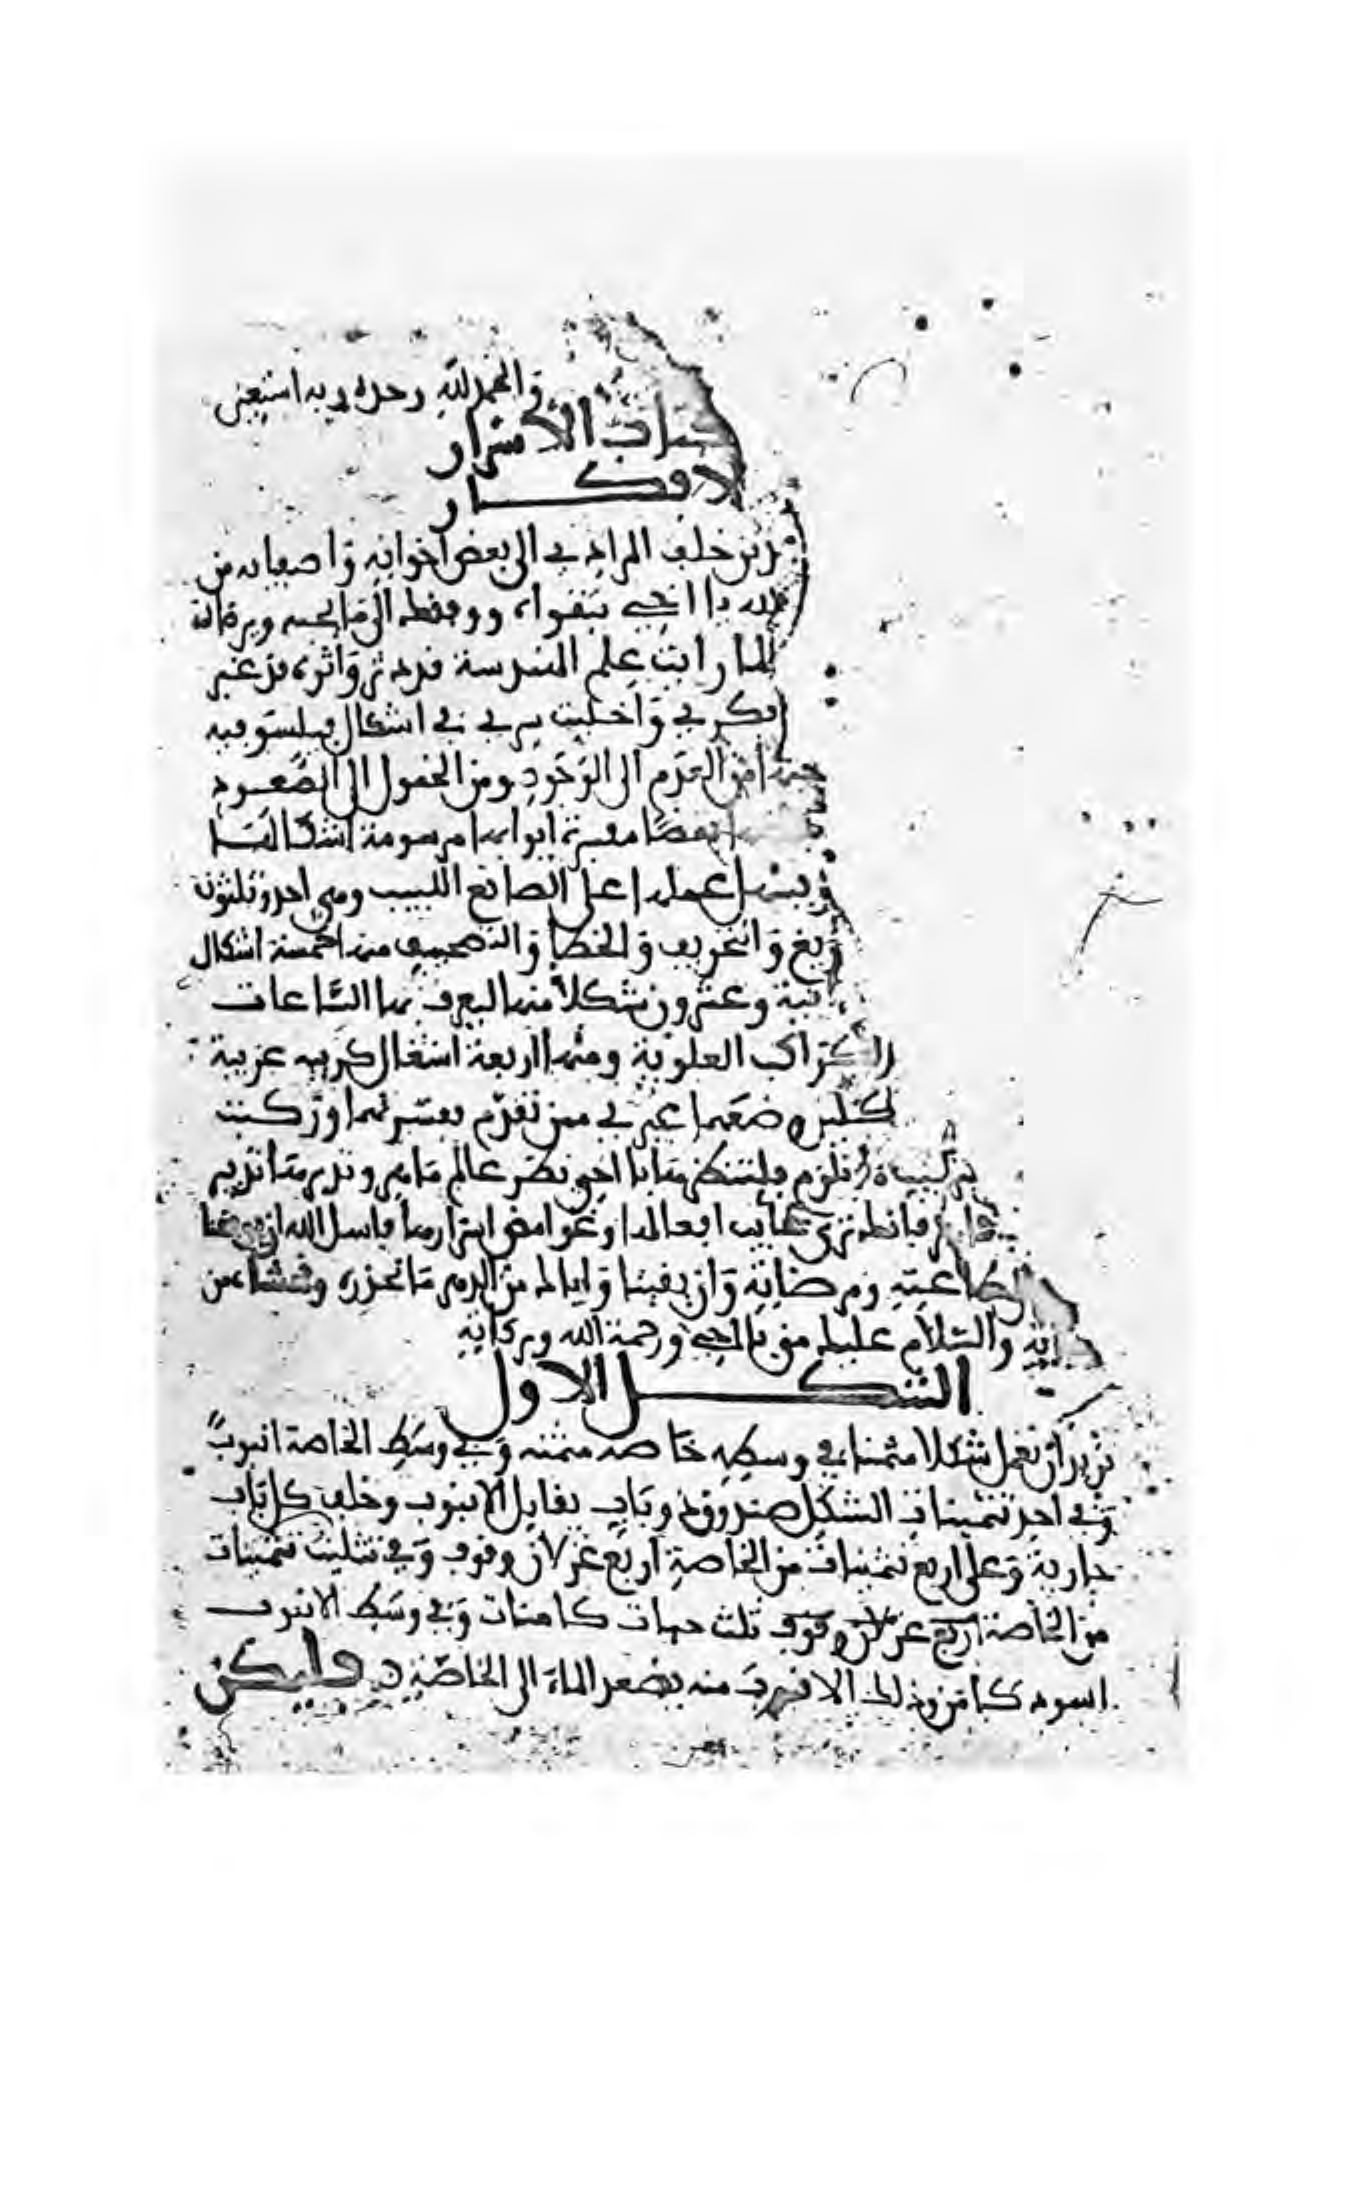 والحمد لله وحده وبه استعين
كتاب الاسرار
الافكار
بن خلف المرادي الى بعض اخوانه واصفيائه من
الله يا اخي بتقواه ووفقك الى ما يحبه ويرضاه
لما رايت علم الهندسة قد دثر واثره قد غبر
فكري واخليت سري في اشكال فيلسوفيه
من العدم الى الوجود ومن الخمول الى الصعود
بعضا مفسرة ابوابها مرسومة اشكالها
ويسهل عملها على الصانع اللبيب وهي احد وثلثون
والتحريف والخطا والتصحيف منها خمسة اشكال
وعشرون شكلا منها ليعرف بها الساعات
الكواكب العلوية ومنها اربعة اشغال غريبة
وضعها غيري ممن تقدم بعسر لها وركبت
تلزم فلتنظر هنا يا اخي نظر عالم ماهر وتدبر هذا تدبير
فانك ترى عجايب افعالها وغوامض اسرارها فاسل الله ان
طاعته ومرضاته وان يقينا واياك من الدهر ما نحذره ونخشاه من
والسلام عليك من يا اخي ورحمة الله وبركاته
الشكل الاول
نريد ان نعمل شكلا مثمنا في وسطه خاصه مثمنه وفي وسط الخاصة انبوب
وفي احد تثمينات الشكل صندوق ذو باب يقابل الانبوب وخلف كل باب
جارية وعلى اربع تثمينات من الخاصة اربع غزلان وقوف وفي تثليث تثمينات
من الخاصة اربع غزلان وقوف ثلث حيات كامنات وفي وسط الانبوب
اسود كامن وذلك الانبوب منه يصعد الماء الى الخاصة وليكن